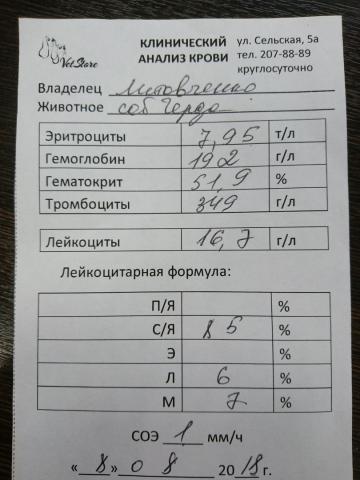 VetStare
КЛИНИЧЕСКИЙ АНАЛИЗ КРОВИ
ул. Сельская, 5а
тел. 207-88-89
круглосуточно
Владелец Литовченко
Животное соб Герда
Эритроциты 7,95 т/л
Гемоглобин 192 г/л
Гематокрит 51,9 %
Тромбоциты 349 г/л
Лейкоциты 16,7 г/л
Лейкоцитарная формула:
П/Я %
С/Я 85 %
Э %
Л 6 %
М 7 %
СОЭ 1 мм/ч
«8» 08 2018 г.